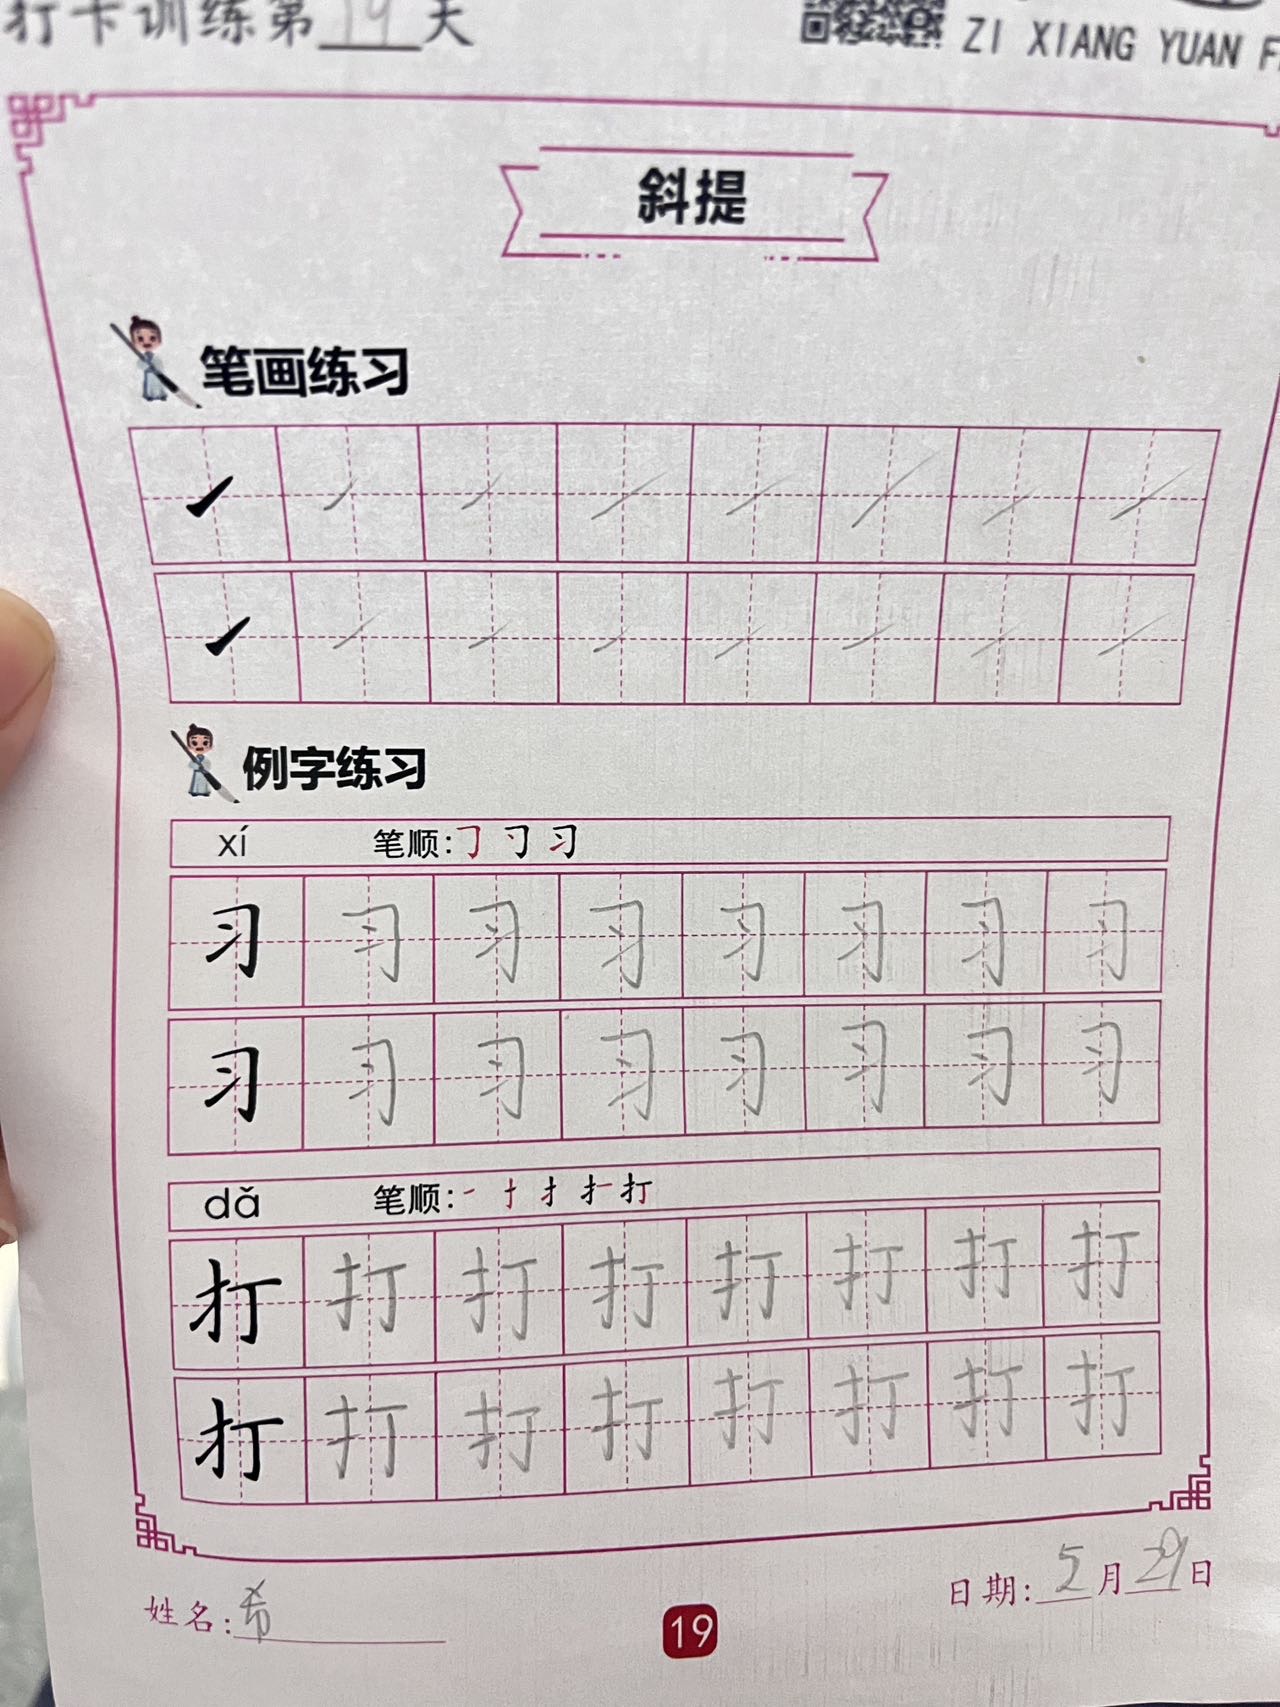 打卡训练第19天
ZI XIANG YUAN
斜提
笔画练习
例字练习
xí 笔顺:㇆ 刁 习
习 习 习 习 习 习 习 习
习 习 习 习 习 习 习 习
dǎ 笔顺:一 十 扌 扌一 打
打 打 打 打 打 打 打 打
打 打 打 打 打 打 打 打
姓名:希
日期:5月29日
19